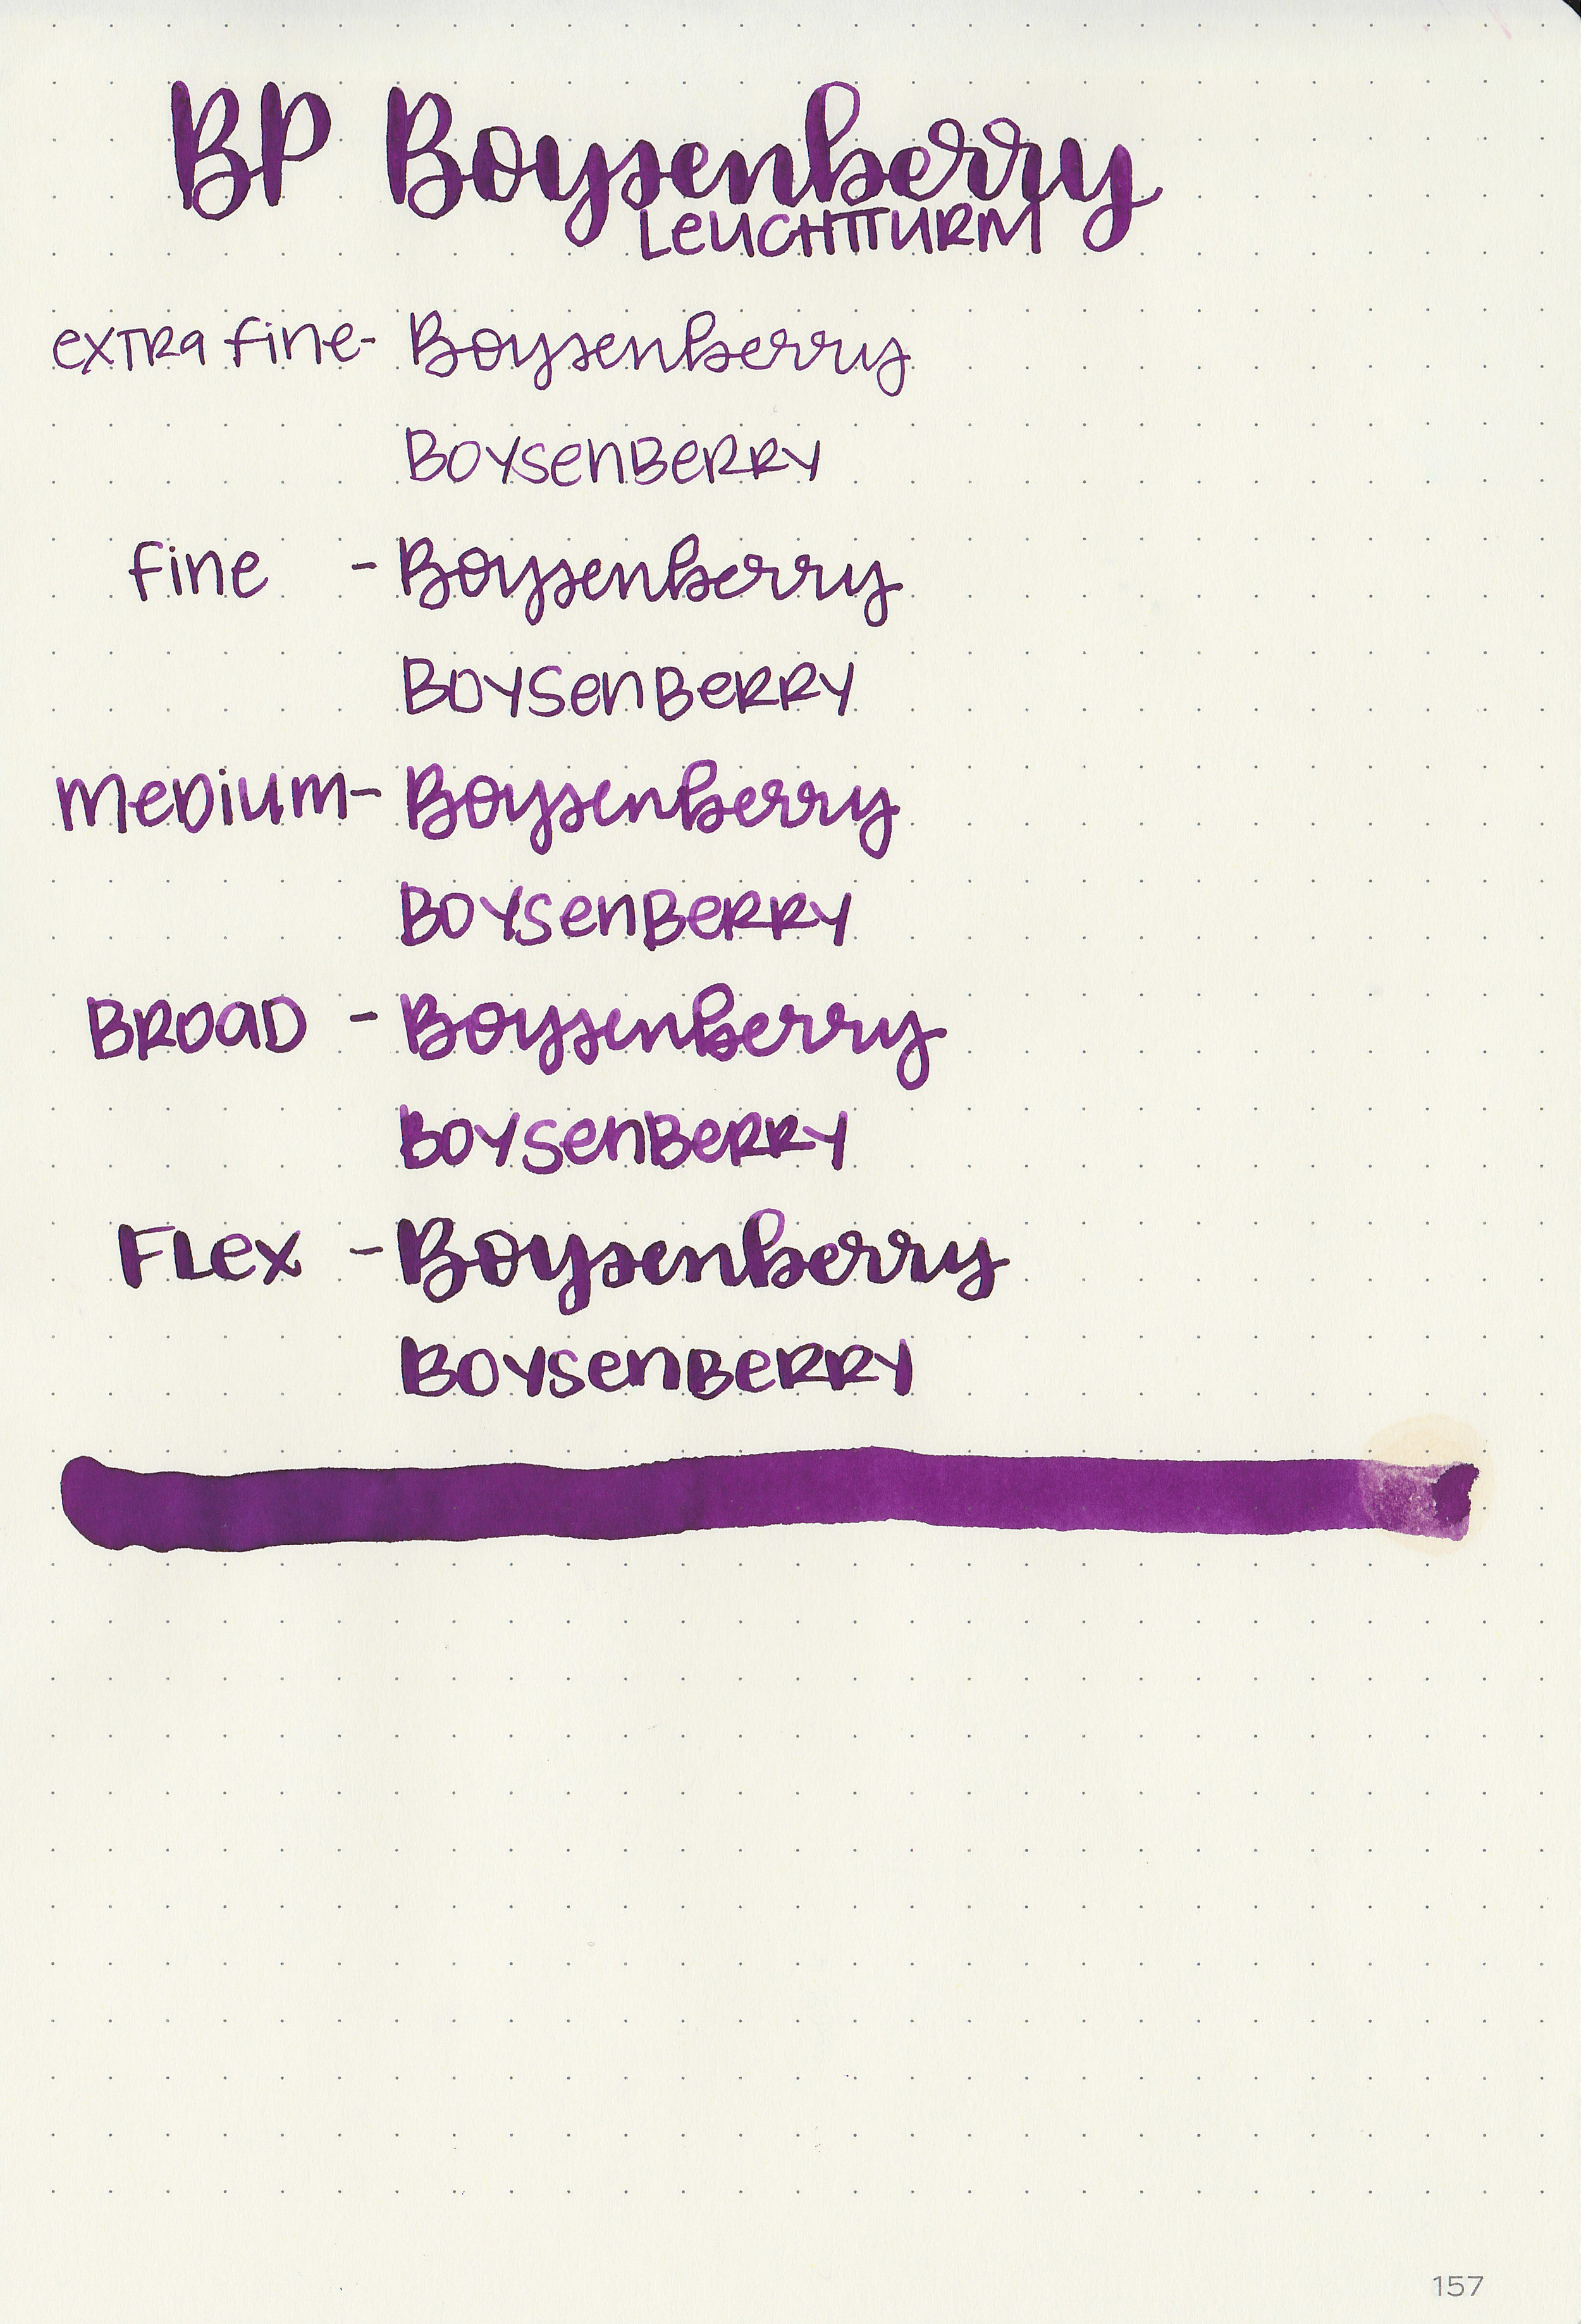 BP Boysenberry
LEUCHTTURM
extra fine- Boysenberry
BOYSENBERRY
fine - Boysenberry
BOYSENBERRY
MEDIUM- Boysenberry
BOYSENBERRY
BROAD - Boysenberry
BOYSENBERRY
FLEX - Boysenberry
BOYSENBERRY
157